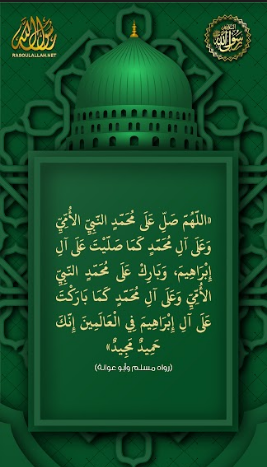 رسول الله
RASOULALLAH.NET
رسول الله
«اللَّهُمَّ صَلِّ عَلَى مُحَمَّدٍ النَّبِيِّ الأُمِّيِّ
وَعَلَى آلِ مُحَمَّدٍ كَمَا صَلَّيْتَ عَلَى آلِ
إِبْرَاهِيمَ، وَبَارِكْ عَلَى مُحَمَّدٍ النَّبِيِّ
الأُمِّيِّ وَعَلَى آلِ مُحَمَّدٍ كَمَا بَارَكْتَ
عَلَى آلِ إِبْرَاهِيمَ فِي الْعَالَمِينَ إِنَّكَ
حَمِيدٌ مَّجِيدٌ»
(رواه مسلم وأبو عوانة)